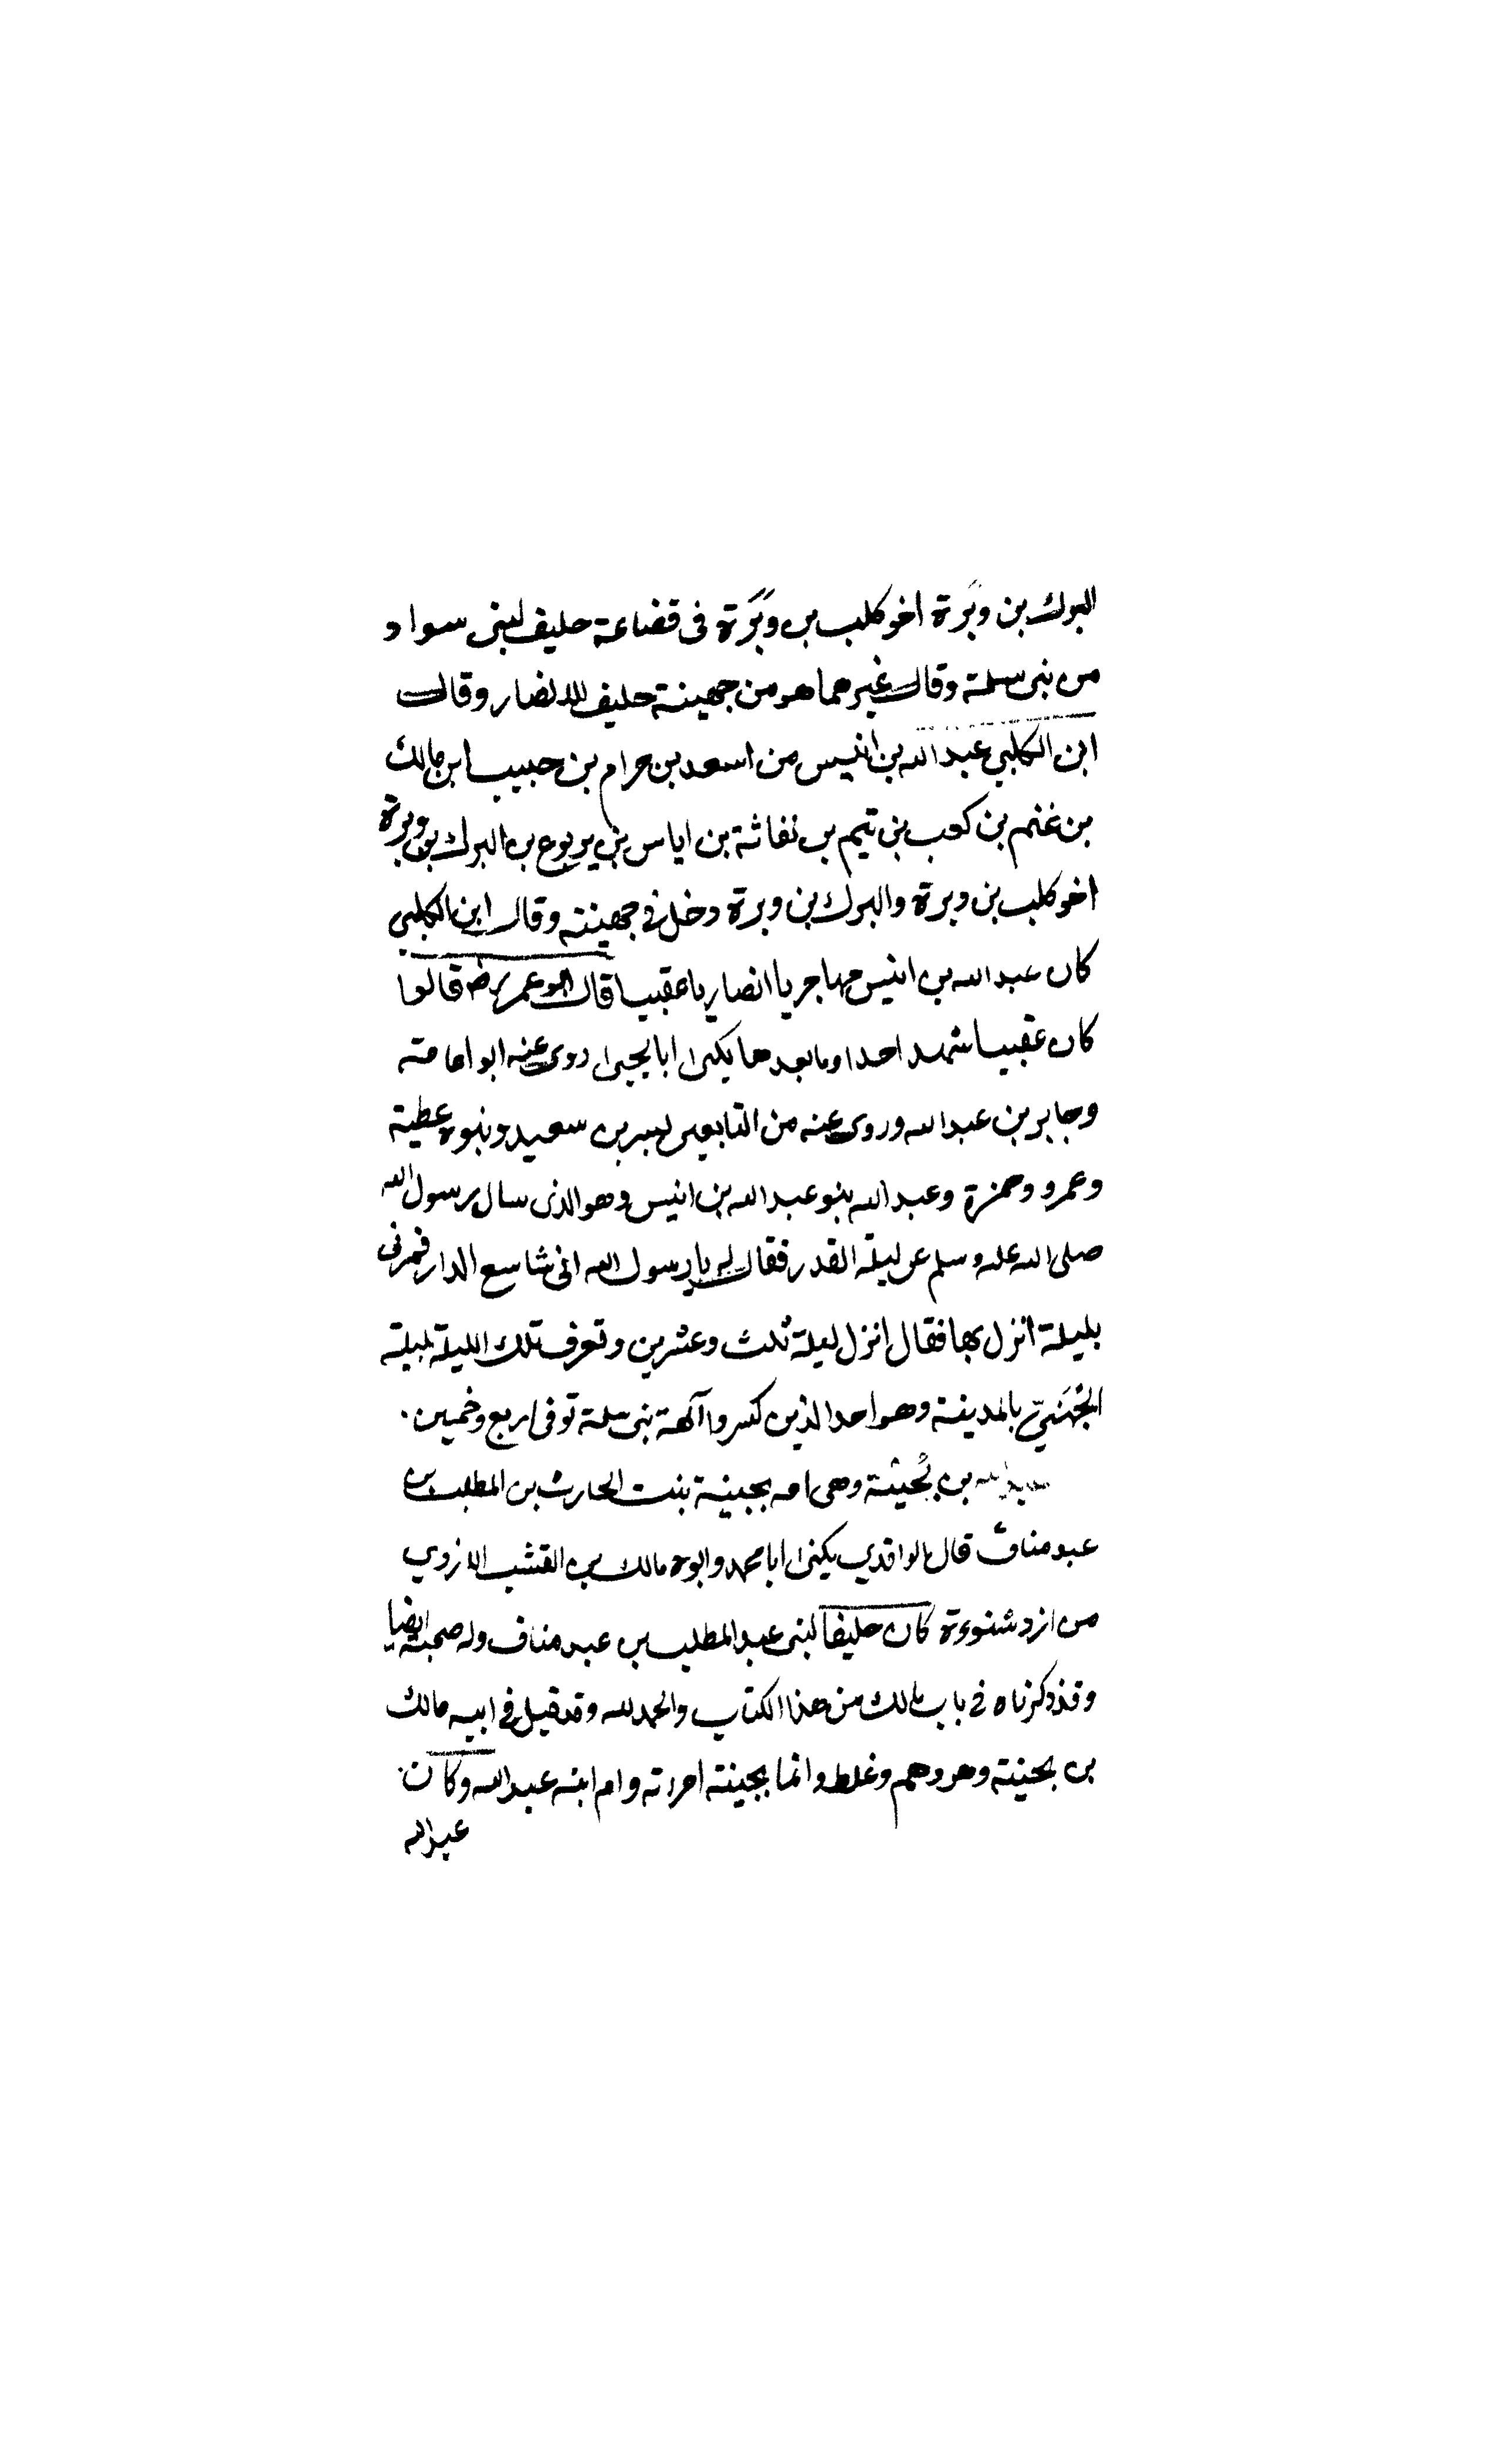 البرك بن وَبْرة اخو كلب بن وَبَرَة فى قضاعة حليف لبنى سواد
من بنى سلمة وقال غيرهما هو من جهينة حليف للانصار وقال
ابن الكلبي عبد الله بن انيس من اسعد بن حرام بن حبيب ابن مالك
بن غنم بن كعب بن تيم بن نفاثة بن اياس بن يربوع بن البرك بن وبرة
اخو كلب بن وبرة والبرك بن وبرة دخل في جهينة وقال ابن الكلبي
كان عبد الله بن انيس مهاجريا انصاريا عقبيا قال ابو عمر رضه قالوا
كان عقبيا شهد احدا وما بعدها يكنى ابا يحيى روى عنه ابو امامة
وجابر بن عبد الله وروى عنه من التابعين بسر بن سعيد وبنوه عطية
وعمرو وحمزة وعبد الله بنو عبد الله بن انيس وهو الذى سال رسول الله
صلى الله عليه وسلم عن ليلة القدر فقال له يا رسول الله انى شاسع الدار فمرنى
بليلة انزل بها فقال انزل ليلة ثلث وعشرين وتعرف تلك الليلة بليلة
الجُهَنيّ بالمدينة وهو احد الذين كسروا آلهة بنى سلمة توفى اربع وخمسين.
عبد الله بن بُحينة وهى امه بحينة بنت الحارث بن المطلب بن
عبد مناف قال الواقدي يكنى ابا محمد وابوه مالك بن القشب الازدي
من ازد شنوءة كان حليفا لبنى عبد المطلب بن عبد مناف وله صحبة ايضا
وقد ذكرناه في باب مالك من هذا الكتاب والحمد لله وقد قيل في ابيه مالك
بن بحينة وهو وهم وغلط وانما بحينة امرءته وام ابنه عبد الله وكان
عبد الله